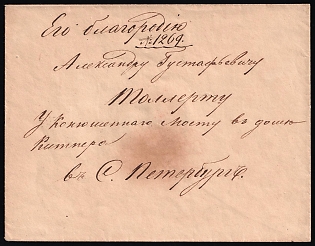 Его благородію
№ 1269.
Александру Густафьевичу
Толлерту
У Конюшеннаго Мосту въ домѣ
Китнера
въ С. Петербургѣ.